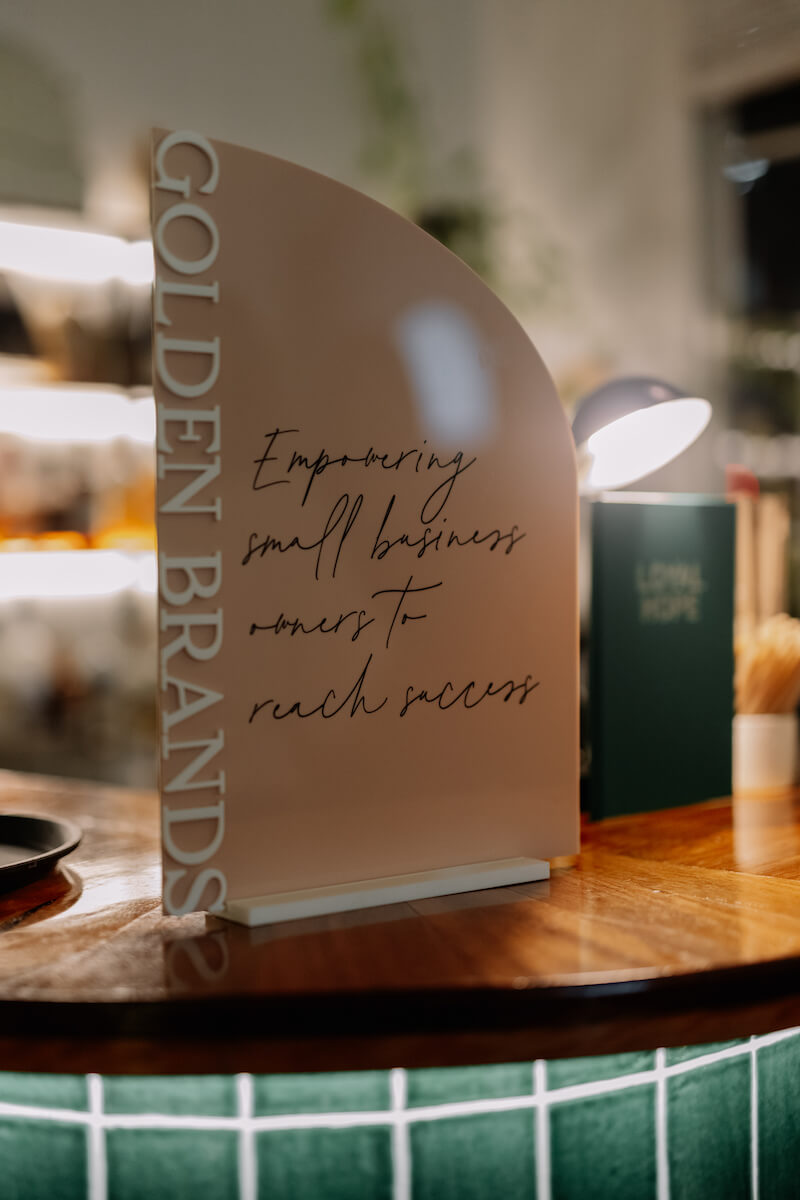 GOLDEN BRANDS
Empowering
small business
owners to
reach success
LOYAL
HOPE